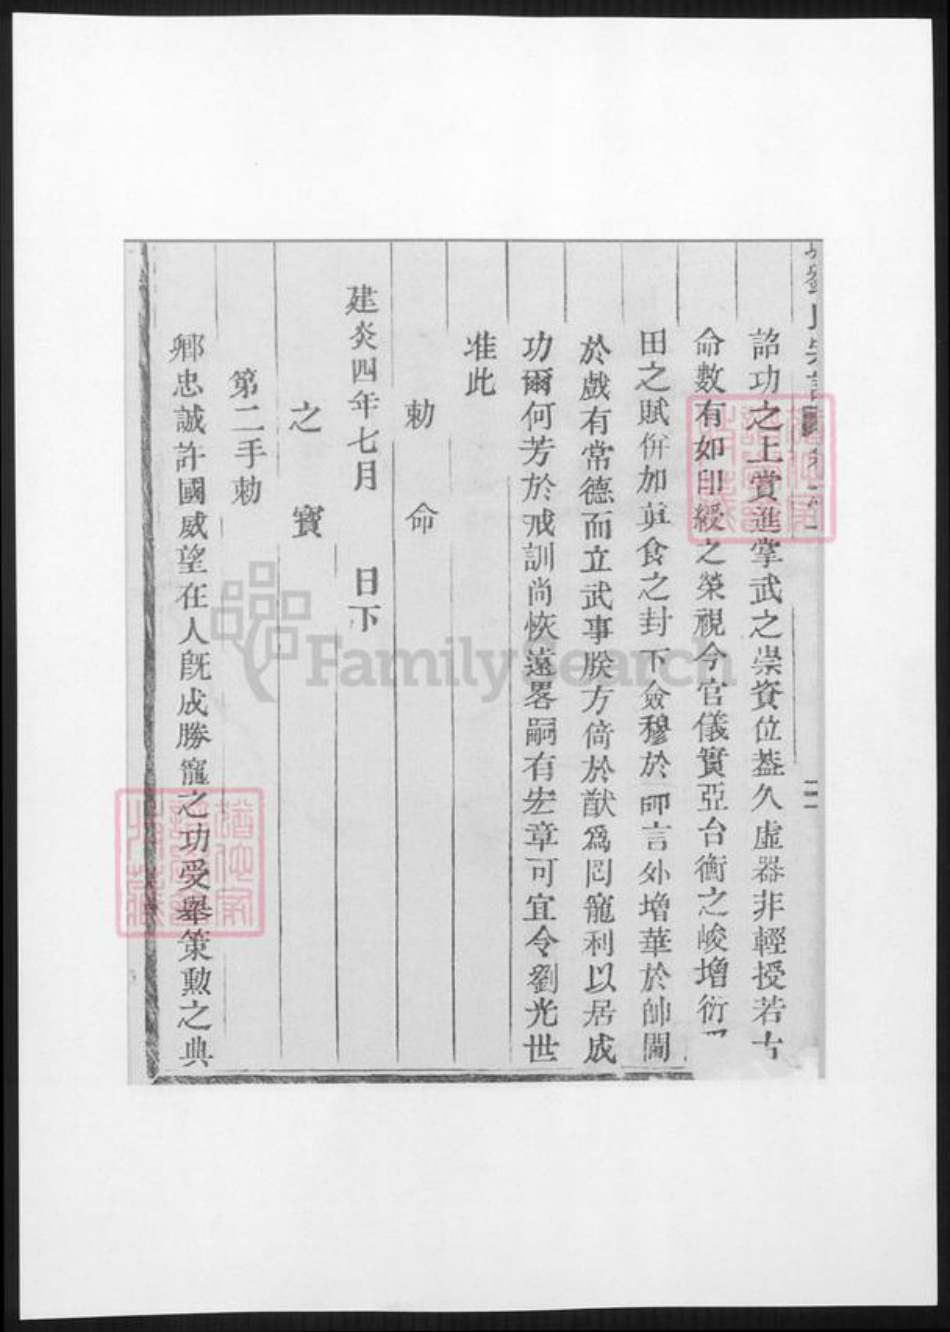 詔功之上賞進掌武之崇資位葢久虛器非輕授若古
命數有如印綬之榮視今官儀實亞台衡之峻增衍
田之賦併加眞食之封下僉穆於師言外增華於帥閫
於戲有常德而立武事朕方倚於猷爲罔寵利以居成
功爾何芳於戒訓尚恢遠畧嗣有宏章可宜令劉光世
准此
勅命
建炎四年七月 日下
之寳
第二手勅
鄉忠誠許國威望在人旣成勝寵之功受舉策勲之典
FamilySearch